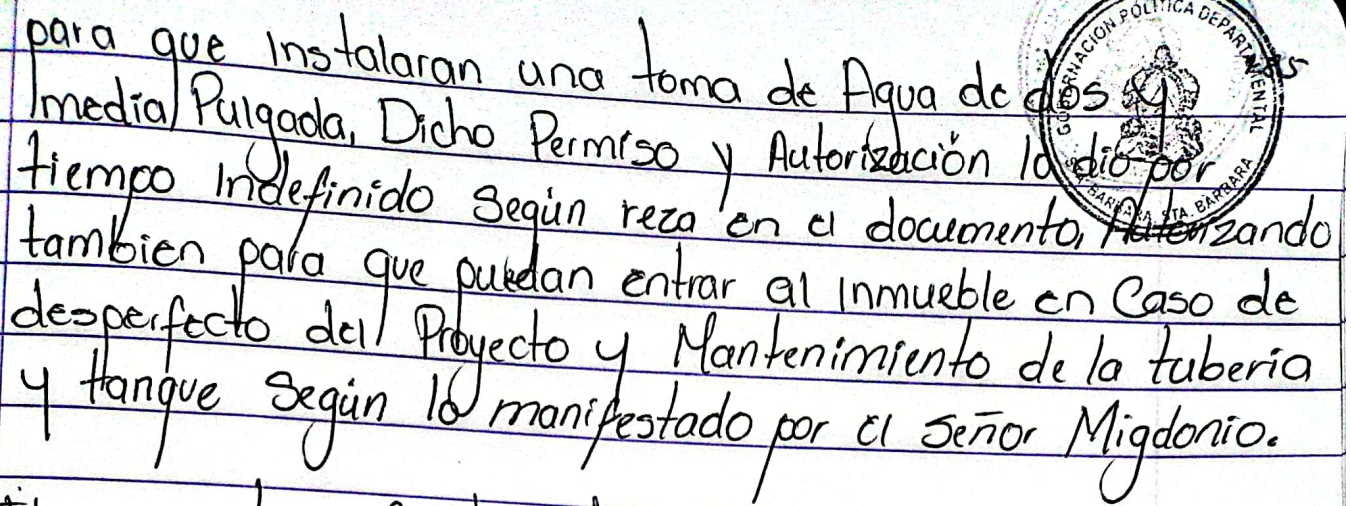 para que instalaran una toma de Agua de dos y
media Pulgada, Dicho Permiso y Autorización lo dio por
tiempo indefinido Según reza en el documento, Autorizando
tambien para que puedan entrar al inmueble en Caso de
desperfecto del Proyecto y Mantenimiento de la tuberia
y tanque Según lo manifestado por el Señor Migdonio.
GOBERNACION POLITICA DEPARTAMENTAL
STA. BARBARA